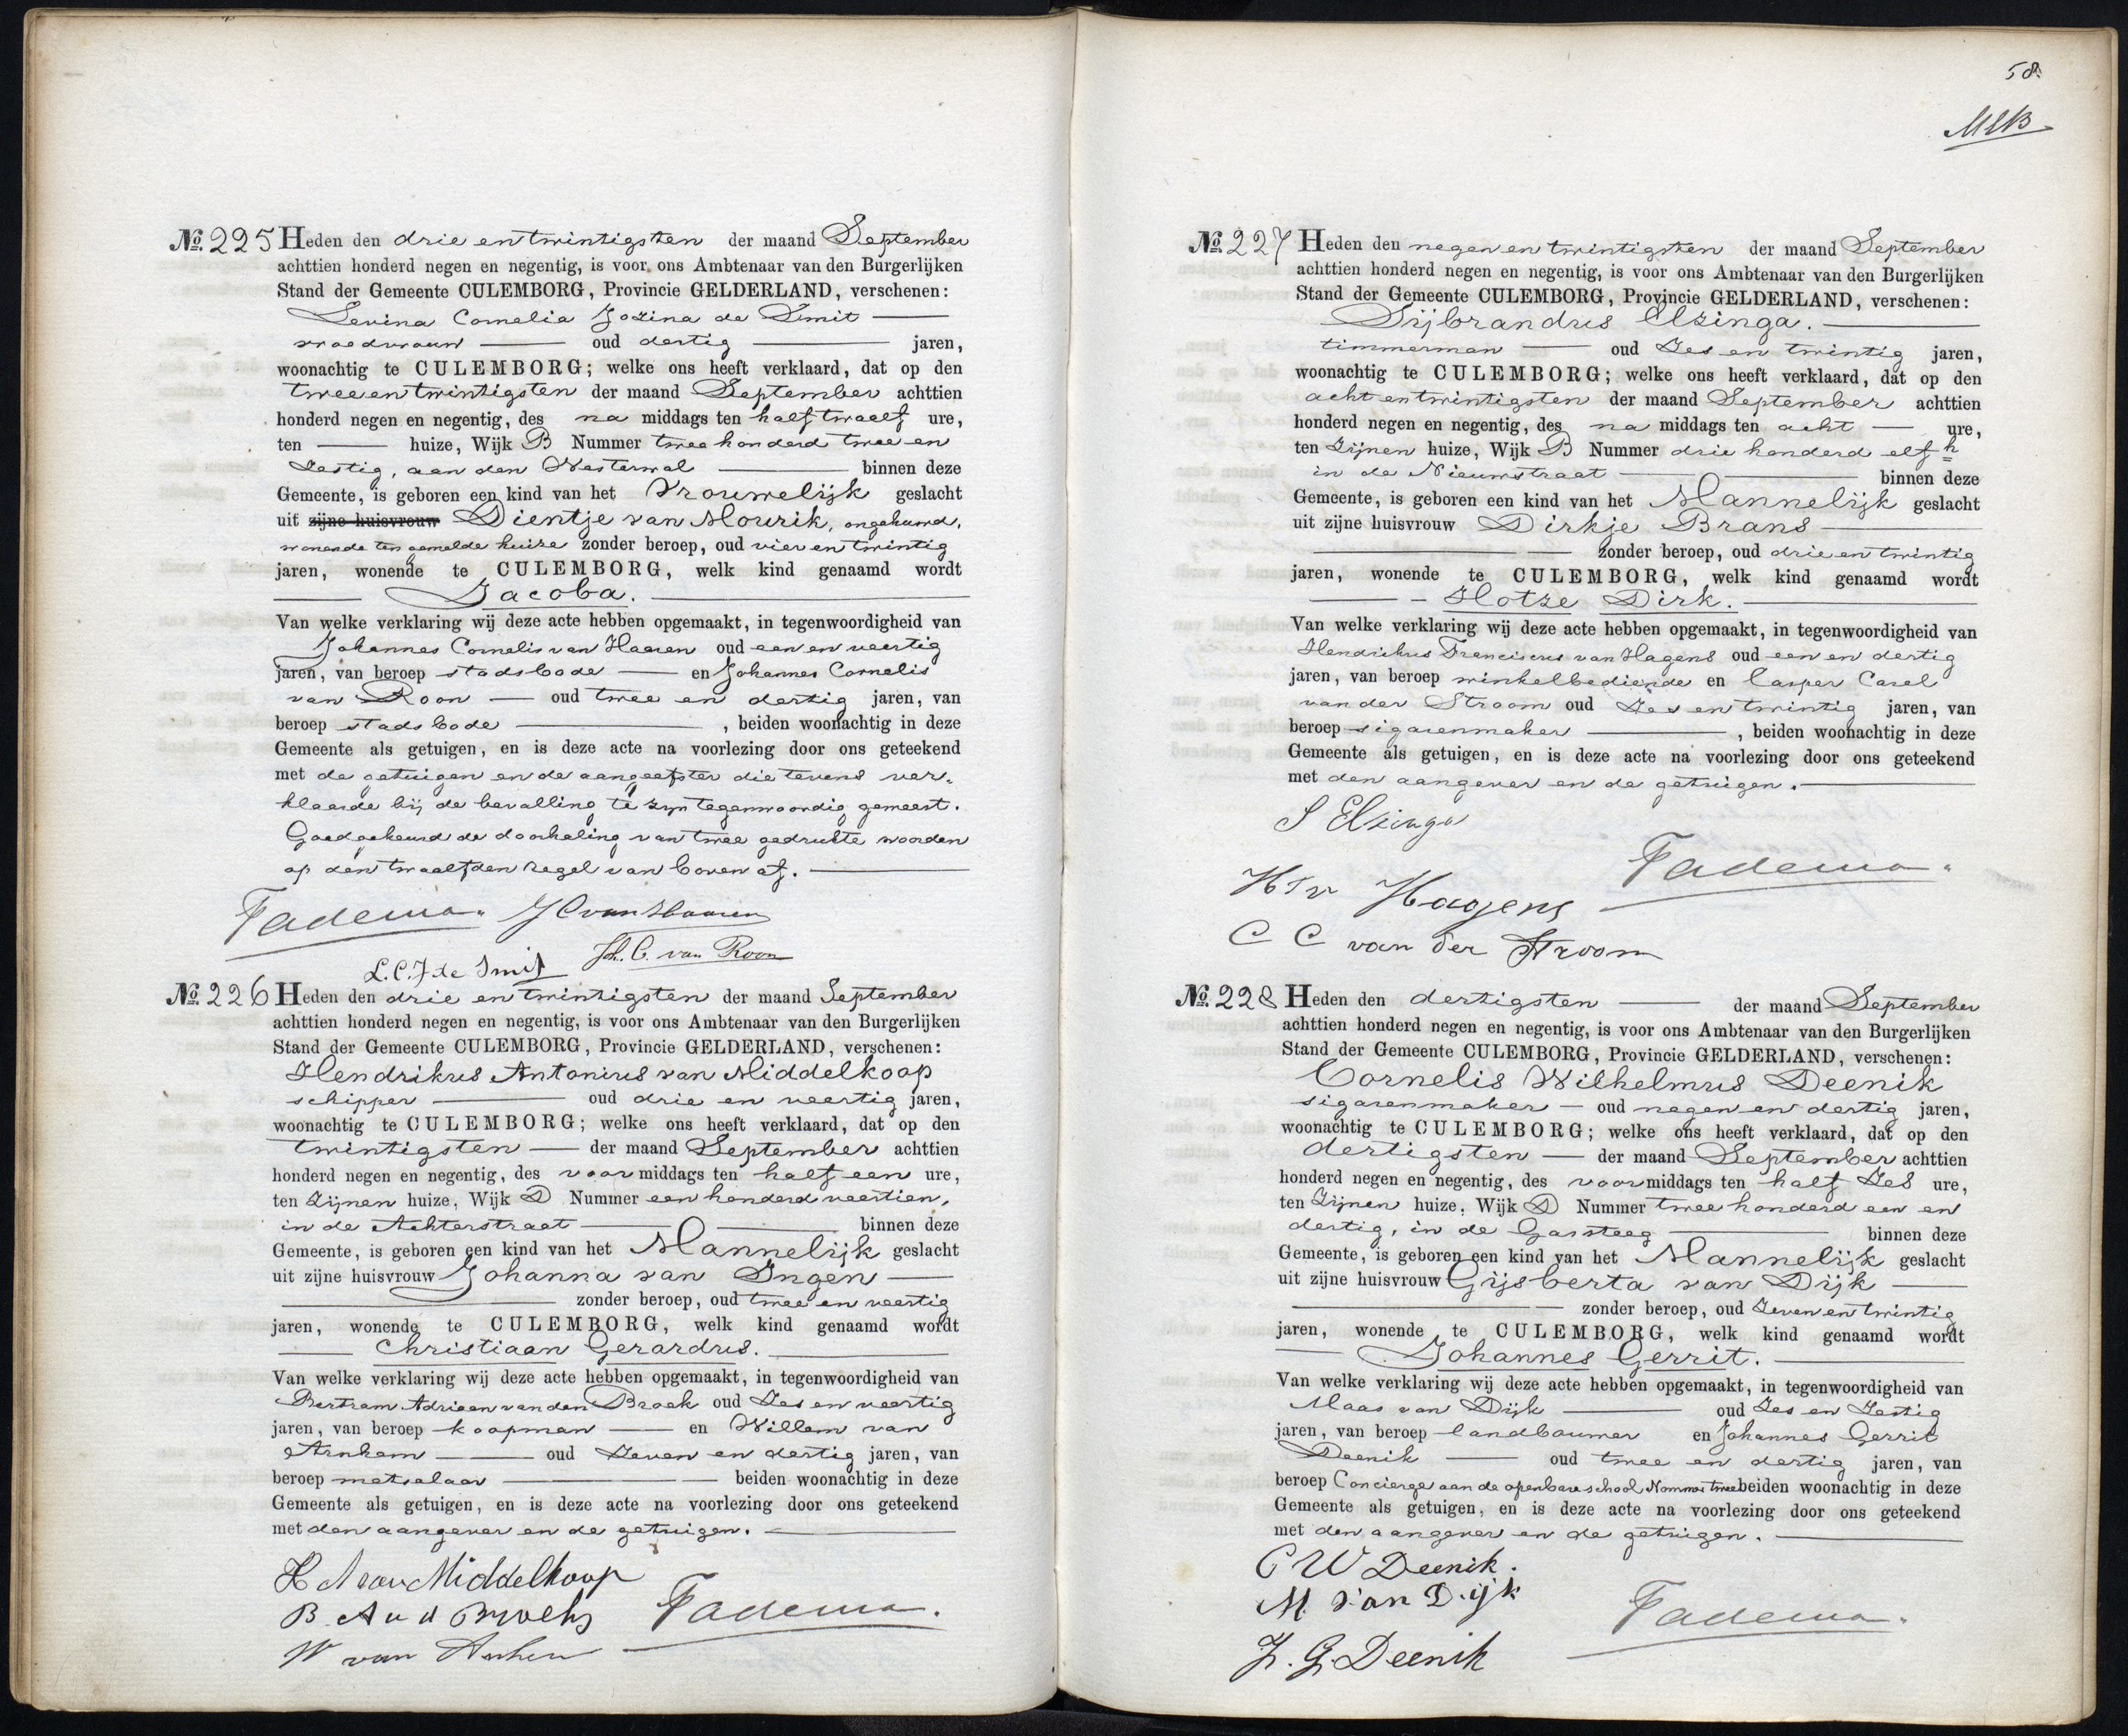 No. 225 Heden den drie en twintigsten der maand September
achttien honderd negen en negentig, is voor ons Ambtenaar van den Burgerlijken
Stand der Gemeente CULEMBORG, Provincie GELDERLAND, verschenen:
Levina Cornelia Jozina de Smit
vroedvrouw oud dertig jaren,
woonachtig te CULEMBORG; welke ons heeft verklaard, dat op den
twee en twintigsten der maand September achttien
honderd negen en negentig, des na middags ten half twaalf ure,
ten huize, Wijk B Nummer twee honderd twee en
zestig, aan den Westerwal binnen deze
Gemeente, is geboren een kind van het Vrouwelijk geslacht
uit zijne huisvrouw Dientje van Mourik, ongehuwd,
wonende ten gemelde huize zonder beroep, oud vier en twintig
jaren, wonende te CULEMBORG, welk kind genaamd wordt
Jacoba.
Van welke verklaring wij deze acte hebben opgemaakt, in tegenwoordigheid van
Johannes Cornelis van Haaren oud een en veertig
jaren, van beroep stadsbode en Johannes Cornelis
van Roon oud twee en dertig jaren, van
beroep stadsbode, beiden woonachtig in deze
Gemeente als getuigen, en is deze acte na voorlezing door ons geteekend
met de getuigen en de aangeefster die tevens ver-
klaarde bij de bevalling te zijn tegenwoordig geweest.
Goedgekeurd de doorhaling van twee gedrukte woorden
op den twaalfden regel van boven af.
Fadema. J C van Haaren
L. C. J de Smit Joh. C. van Roon
No. 226 Heden den drie en twintigsten der maand September
achttien honderd negen en negentig, is voor ons Ambtenaar van den Burgerlijken
Stand der Gemeente CULEMBORG, Provincie GELDERLAND, verschenen:
Hendrikus Antonius van Middelkoop
schipper oud drie en veertig jaren,
woonachtig te CULEMBORG; welke ons heeft verklaard, dat op den
twintigsten der maand September achttien
honderd negen en negentig, des voor middags ten half een ure,
ten zijnen huize, Wijk D Nummer een honderd veertien,
in de Achterstraat binnen deze
Gemeente, is geboren een kind van het Mannelijk geslacht
uit zijne huisvrouw Johanna van Ingen
zonder beroep, oud twee en veertig
jaren, wonende te CULEMBORG, welk kind genaamd wordt
Christiaan Gerardus.
Van welke verklaring wij deze acte hebben opgemaakt, in tegenwoordigheid van
Bertram Adriaan van den Broek oud zes en veertig
jaren, van beroep koopman en Willem van
Arnhem oud zeven en dertig jaren, van
beroep metselaar beiden woonachtig in deze
Gemeente als getuigen, en is deze acte na voorlezing door ons geteekend
met den aangever en de getuigen.
H A van Middelkoop
B. A v d Broek Fadema.
W van Arnhem
58.
No. 227 Heden den negen en twintigsten der maand September
achttien honderd negen en negentig, is voor ons Ambtenaar van den Burgerlijken
Stand der Gemeente CULEMBORG, Provincie GELDERLAND, verschenen:
Sijbrandus Elzinga.
timmerman oud zes en twintig jaren,
woonachtig te CULEMBORG; welke ons heeft verklaard, dat op den
acht en twintigsten der maand September achttien
honderd negen en negentig, des na middags ten acht ure,
ten zijnen huize, Wijk B Nummer drie honderd elf h
in de Nieuwstraat binnen deze
Gemeente, is geboren een kind van het Mannelijk geslacht
uit zijne huisvrouw Dirkje Brans
zonder beroep, oud drie en twintig
jaren, wonende te CULEMBORG, welk kind genaamd wordt
Hotze Dirk.
Van welke verklaring wij deze acte hebben opgemaakt, in tegenwoordigheid van
Hendrikus Franciscus van Hagens oud een en dertig
jaren, van beroep winkelbediende en Casper Carel
van der Stroom oud zes en twintig jaren, van
beroep sigarenmaker, beiden woonachtig in deze
Gemeente als getuigen, en is deze acte na voorlezing door ons geteekend
met den aangever en de getuigen.
S Elzinga
Fadema.
H F v Hagens
C C van der Stroom
No. 228 Heden den dertigsten der maand September
achttien honderd negen en negentig, is voor ons Ambtenaar van den Burgerlijken
Stand der Gemeente CULEMBORG, Provincie GELDERLAND, verschenen:
Cornelis Wilhelmus Deenik
sigarenmaker oud negen en dertig jaren,
woonachtig te CULEMBORG; welke ons heeft verklaard, dat op den
dertigsten der maand September achttien
honderd negen en negentig, des voormiddags ten half zes ure,
ten zijnen huize, Wijk D Nummer twee honderd een en
dertig, in de Gassteeg binnen deze
Gemeente, is geboren een kind van het Mannelijk geslacht
uit zijne huisvrouw Gijsberta van Dijk
zonder beroep, oud zeven en twintig
jaren, wonende te CULEMBORG, welk kind genaamd wordt
Johannes Gerrit.
Van welke verklaring wij deze acte hebben opgemaakt, in tegenwoordigheid van
Maas van Dijk oud zes en zestig
jaren, van beroep landbouwer en Johannes Gerrit
Deenik oud twee en dertig jaren, van
beroep Concierge aan de openbare school Nommer twee beiden woonachtig in deze
Gemeente als getuigen, en is deze acte na voorlezing door ons geteekend
met den aangever en de getuigen.
C W Deenik.
M. van Dijk
Fadema.
J. G. Deenik